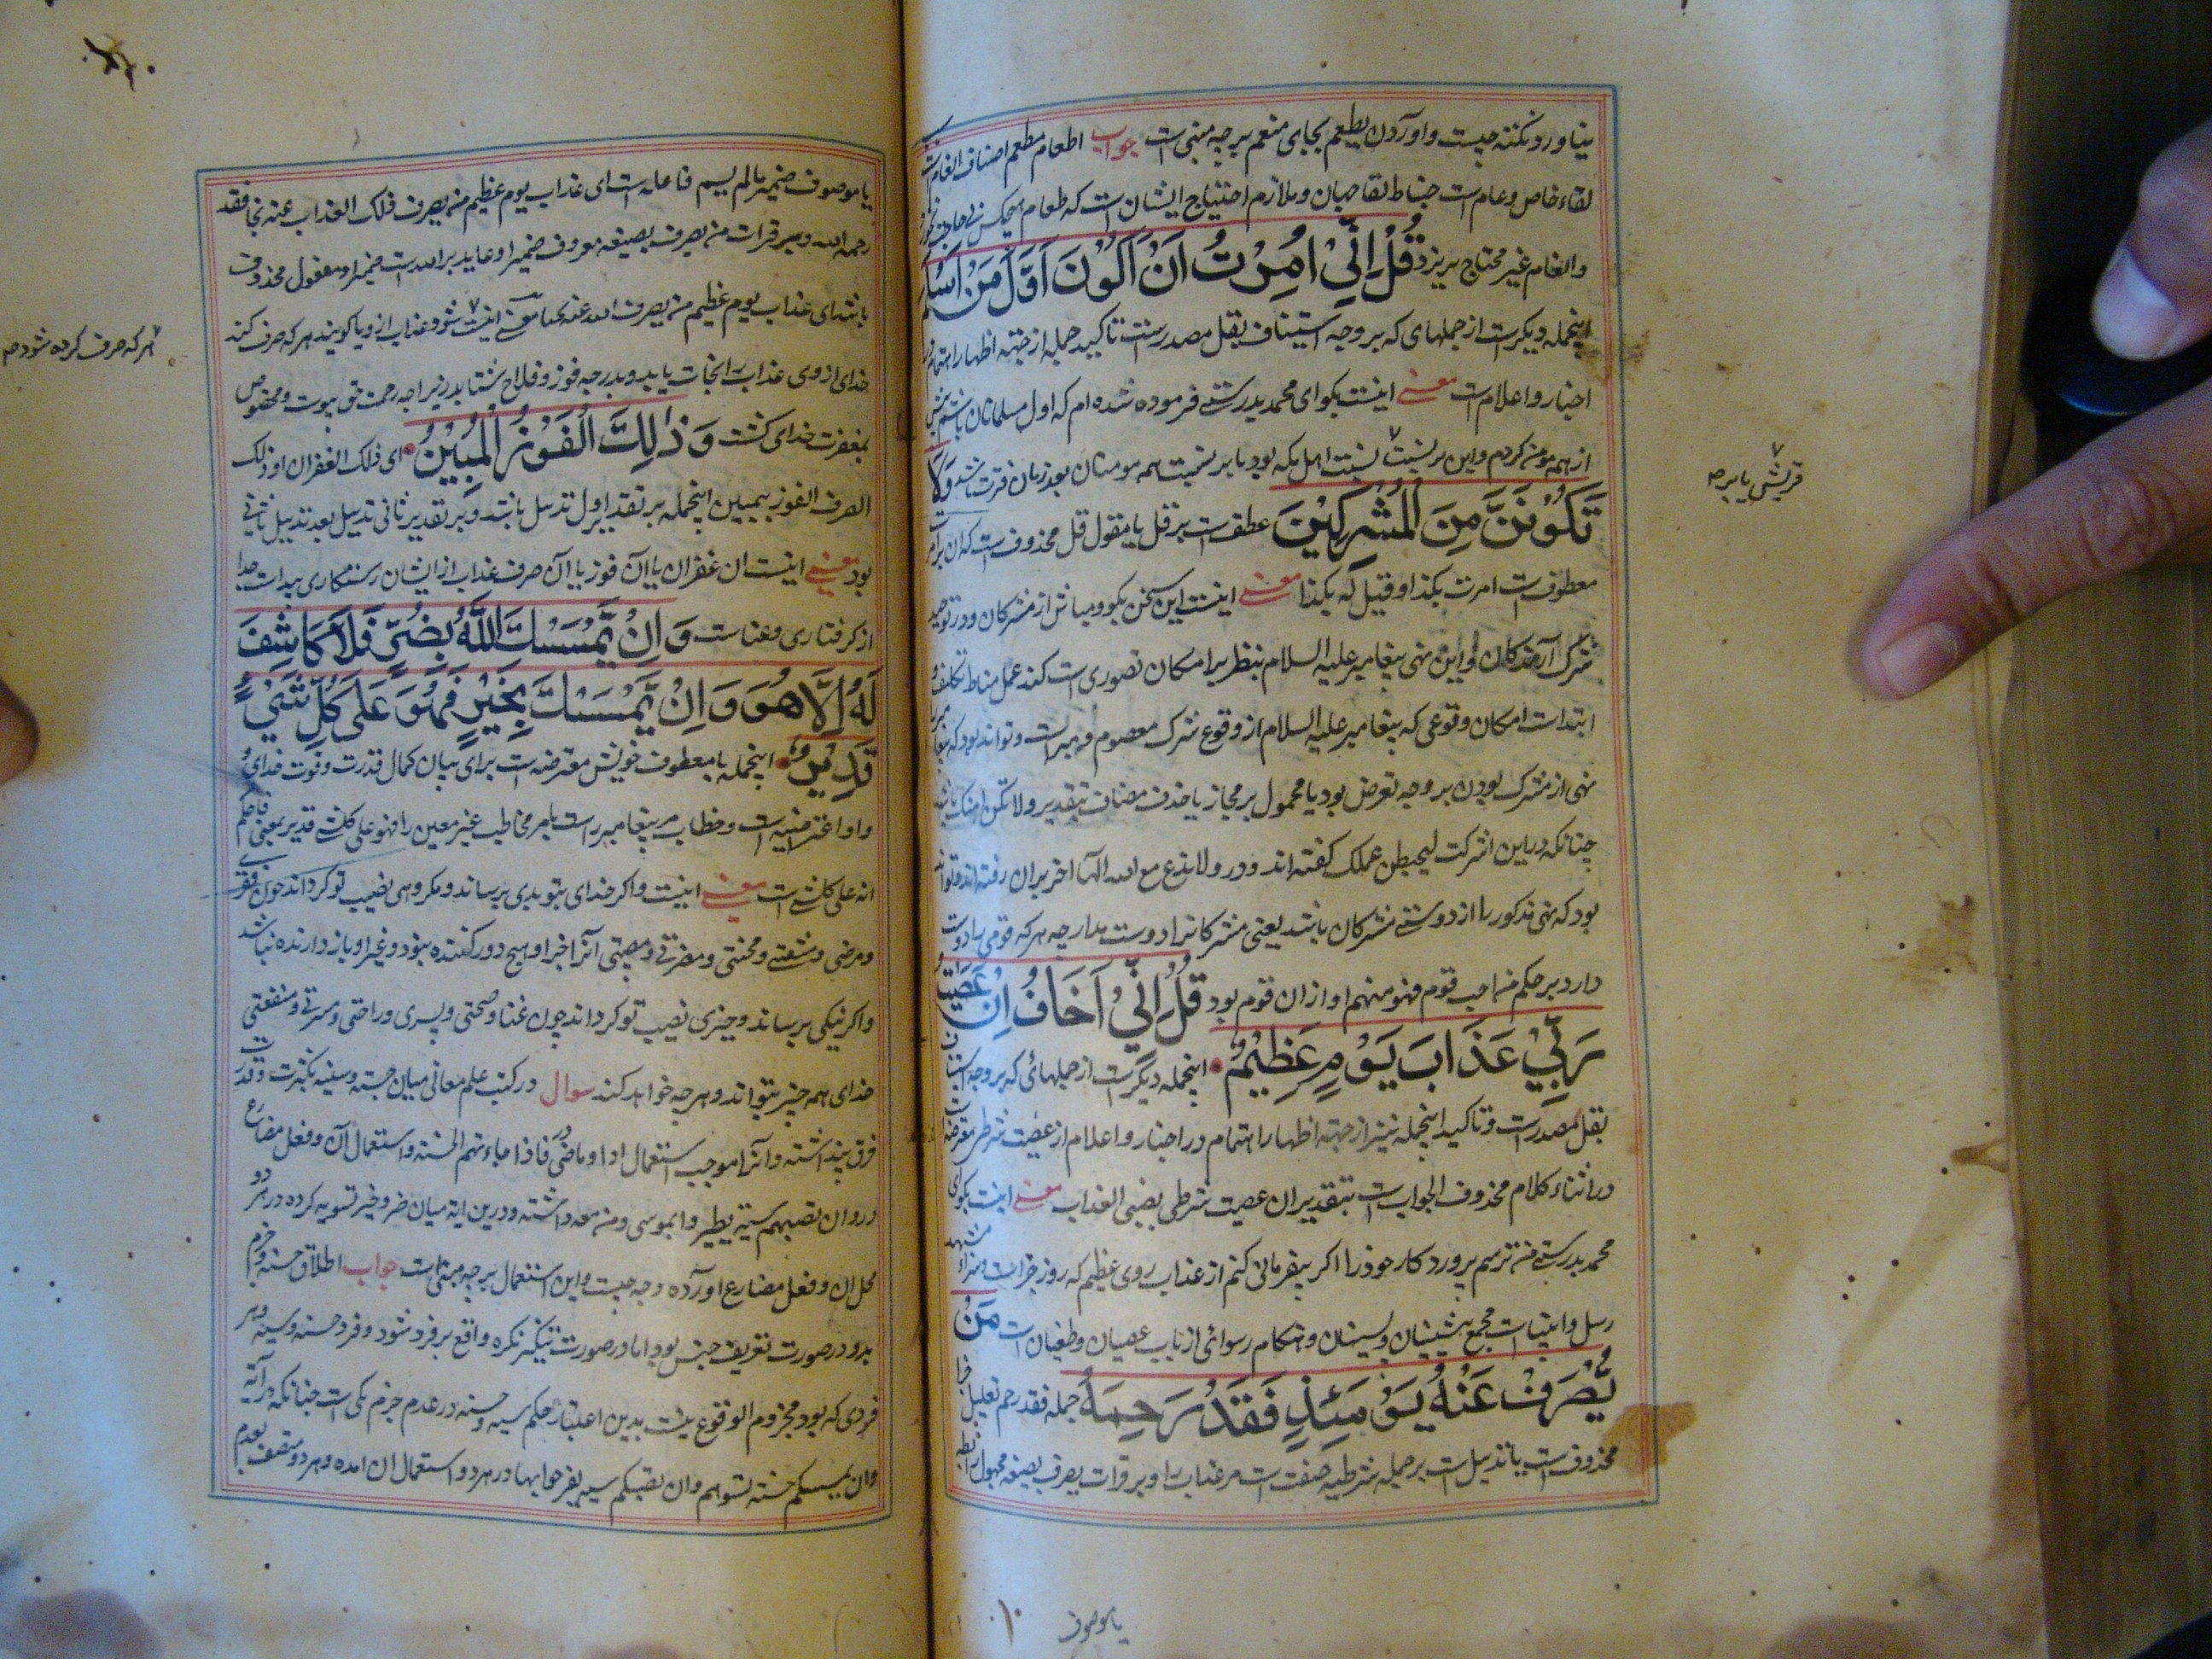 نیاورد نکته چیست و آوردن یطعم بجای منعم بر چه مبنی است جواب اطعام مطعم اصناف انعام است
لقاء خاص و عام است و ملازم احتیاج ایشان است که طعام هیچکس بی حاجت نخورد
و انعام غیر محتاج بریزد قُلْ اِنِّيْ اُمِرْتُ اَنْ اَكُوْنَ اَوَّلَ مَنْ اَسْلَمَ
اینجمله دیگر است از جملهای که بر وجه استیناف بقل مصدر است تاکید جمله از جهته اظهار اهتمام در
اخبار و اعلام است معنے اینست بگو ای محمد بدرستے فرموده شده ام که اول مسلمانان باشم پیش
از همه مومن کردم و این بر نسبت نسبت اهل مکه بود یا بر نسبت همه مومنان بعد زمان فترت باشد وَلَا
تَكُوْنَنَّ مِنَ الْمُشْرِكِيْنَ عطف است بر قل یا مقول قل محذوف است که آن بر امرت
معطوف است امرت بکذا و قیل لی بکذا معنے اینست این سخن بگو و مباش از مشرکان و در توحید
شرک آرندکان و این نهی پیغامبر علیه السلام بنظر بر امکان تصوری است کند عمل مناط تکلیف و
ابتدا است امکان وقوعی که پیغامبر علیه السلام از وقوع شرک معصوم و مبرا است و تواند بود که
نهی از مشرک بودن بر وجه تعرض بود یا محمول بر مجاز یا حذف مضاف بتقدیر ولا تکن امتک باشد
چنانکه در لین اشرکت لیحبطن عملک گفته اند و در ولا تدع مع الله الها اخر بران رفته اند و تواند
بود که نهی مذکور را از دوستے مشرکان باشد یعنی مشرکانرا دوست مدار چه هر که قومی را دوست
دارد بر حکم من احب قوم فهو منهم او ازان قوم بود قُلْ اِنِّيْ اَخَافُ اِنْ عَصَيْتُ
رَبِّيْ عَذَابَ يَوْمٍ عَظِيْمٍ اینجمله دیگر است از جملهائی که بر وجه استیناف
بقل مصدر است و تاکید اینجمله نیز از جهته اظهار اهتمام در اخبار و اعلام از عصیت شرطی معترضه است
در اثناء کلام محذوف الجواب است بتقدیر ان عصیت شرطی یصبنی العذاب معنے اینست بگو ای
محمد بدرستے من ترسم پروردکار خود را اکر بیفرمانی کنم از عذاب روی عظیم که روز جزا است و
رسل و انبیا است مجمع پیشینیان و پسینان و هنکام رسوائی ارباب عصیان و طغیان است مَنْ
يُصْرَفْ عَنْهُ يَوْمَئِذٍ فَقَدْ رَحِمَهُ جمله فقد رحم تعلیل جزا
محذوف است یا تذییل است بر جمله شرطیه صفت است مر عذاب را و بر قرات یصرف بصیغه مجهول رابطه
قریش یا بر صح
یا موصوف
۱۰
یا موصوف ضمیر ما لم یسم فاعله است ای عذاب یوم عظیم من یصرف ذلک العذاب عنه نجا فقد
رحمه الله و بر قرات من یصرف بصیغه معروف ضمیر او عاید بر الله است ضمیر او مفعول محذوف
باشد ای عذاب یوم عظیم من یصرف الله عنه نجا معنے اینست شود عذاب از وی یا کویند هر که صرف کند
خدای از وی عذاب را نجات یابد و بدرجه فوز و فلاح شتابد زیراچه رحمت حق پیوست و مخصوص
بمغفرت خدای کشت وَذٰلِكَ الْفَوْزُ الْمُبِيْنُ ای ذلک الغفران او ذلک
الصرف الفوز المبین اینجمله بر تقدیر اول تذییل باشد و بر تقدیر ثانی تذییل بعد تذییل یعنی
بود معنے اینست ان غفران یا آن فوز یا آن صرف عذاب از ایشان رستکاری پیدا است جدا
از کرفتاری و عنا است وَاِنْ يَّمْسَسْكَ اللّٰهُ بِضُرٍّ فَلَا كَاشِفَ
لَهٗ اِلَّا هُوَ وَاِنْ يَّمْسَسْكَ بِخَيْرٍ فَهُوَ عَلٰى كُلِّ شَيْءٍ
قَدِيْرٌ اینجمله با معطوف خویش معترضه است برای بیان کمال قدرت و قوت خدای و
واو اعتراضیه است و خطاب مر پیغامبر را است یا مر مخاطب غیر معین را فهو علی کلشے قدیر بمعنی فاحکم
انه علی کلشے است معنے اینست و اکر خدای بتو بدی برساند و مکروهی نصیب تو کرداند چون فقر
و مرضی و مشقتے و محنتی و مضرتے و مصیبتی آنرا جز او هیچ دور کننده نبود و غیر او باز دارنده نباشد
و اکر نیکی برساند و چیزی نصیب تو کرداند چون غنا و صحتی و یسری و راحتی و مسرتے و منفعتی
خدای همه چیز بتواند و هر چه خواهد کند سوال در کتب علم معانی میان حسنه و سیئه بکثرت و قدرت
فرق پنداشته و آنرا موجب استعمال اذا و ماضی در فاذا جاءتهم الحسنه و استعمال آن و فعل مضارع
در و ان تصبهم سیئة یطیروا بموسی و من معه داشته و درین ایة میان ضر و خیر تسویه کرده در هر دو
محل ان و فعل مضارع آورده وجه چیست و این استعمال بر چه مبنی است جواب اطلاق حسنه و جزم
بدو در صورت تعریف جنس بود اما در صورت تنکیر نکره واقع بر فرد شود و فرد حسنه و سیئه و هر
فردی که بود مجزوم الوقوع نیست بدین اعتبار حکم سیئه و حسنه در عدم جزم یکی است چنانکه در آیه
وان یمسسکم حسنة تسؤهم وان تصبکم سیئة یفرحوا بها در هر دو استعمال ان امده و هر دو متصف بعدم
هر که صرف کرده شود صح